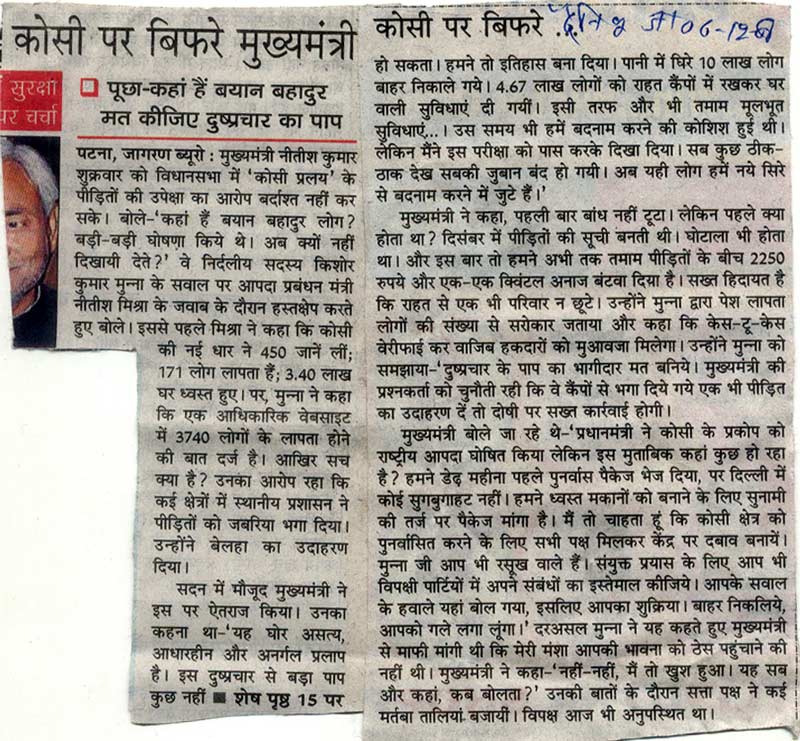 कोसी पर बिफरे मुख्यमंत्री
सुरक्षा
पर चर्चा
पूछा-कहां हैं बयान बहादुर
मत कीजिए दुष्प्रचार का पाप
पटना, जागरण ब्यूरो : मुख्यमंत्री नीतीश कुमार
शुक्रवार को विधानसभा में 'कोसी प्रलय' के
पीड़ितों की उपेक्षा का आरोप बर्दाश्त नहीं कर
सके। बोले-'कहां हैं बयान बहादुर लोग?
बड़ी-बड़ी घोषणा किये थे। अब क्यों नहीं
दिखायी देते?' वे निर्दलीय सदस्य किशोर
कुमार मुन्ना के सवाल पर आपदा प्रबंधन मंत्री
नीतीश मिश्रा के जवाब के दौरान हस्तक्षेप करते
हुए बोले। इससे पहले मिश्रा ने कहा कि कोसी
की नई धार ने 450 जानें लीं;
171 लोग लापता हैं; 3.40 लाख
घर ध्वस्त हुए। पर, मुन्ना ने कहा
कि एक आधिकारिक वेबसाइट
में 3740 लोगों के लापता होने
की बात दर्ज है। आखिर सच
क्या है? उनका आरोप रहा कि
कई क्षेत्रों में स्थानीय प्रशासन ने
पीड़ितों को जबरिया भगा दिया।
उन्होंने बेलहा का उदाहरण
दिया।
सदन में मौजूद मुख्यमंत्री ने
इस पर ऐतराज किया। उनका
कहना था-'यह घोर असत्य,
आधारहीन और अनर्गल प्रलाप
है। इस दुष्प्रचार से बड़ा पाप
कुछ नहीं ■ शेष पृष्ठ 15 पर
कोसी पर बिफरे ..
हो सकता। हमने तो इतिहास बना दिया। पानी में घिरे 10 लाख लोग
बाहर निकाले गये। 4.67 लाख लोगों को राहत कैंपों में रखकर घर
वाली सुविधाएं दी गयीं। इसी तरफ और भी तमाम मूलभूत
सुविधाएं...। उस समय भी हमें बदनाम करने की कोशिश हुई थी।
लेकिन मैंने इस परीक्षा को पास करके दिखा दिया। सब कुछ ठीक-
ठाक देख सबकी जुबान बंद हो गयी। अब यही लोग हमें नये सिरे
से बदनाम करने में जुटे हैं।'
मुख्यमंत्री ने कहा, पहली बार बांध नहीं टूटा। लेकिन पहले क्या
होता था? दिसंबर में पीड़ितों की सूची बनती थी। घोटाला भी होता
था। और इस बार तो हमने अभी तक तमाम पीड़ितों के बीच 2250
रुपये और एक-एक क्विंटल अनाज बंटवा दिया है। सख्त हिदायत है
कि राहत से एक भी परिवार न छूटे। उन्होंने मुन्ना द्वारा पेश लापता
लोगों की संख्या से सरोकार जताया और कहा कि केस-टू-केस
वेरीफाई कर वाजिब हकदारों को मुआवजा मिलेगा। उन्होंने मुन्ना को
समझाया-'दुष्प्रचार के पाप का भागीदार मत बनिये। मुख्यमंत्री की
प्रश्नकर्ता को चुनौती रही कि वे कैंपों से भगा दिये गये एक भी पीड़ित
का उदाहरण दें तो दोषी पर सख्त कार्रवाई होगी।
मुख्यमंत्री बोले जा रहे थे-'प्रधानमंत्री ने कोसी के प्रकोप को
राष्ट्रीय आपदा घोषित किया लेकिन इस मुताबिक कहां कुछ हो रहा
है? हमने डेढ़ महीना पहले पुनर्वास पैकेज भेज दिया, पर दिल्ली में
कोई सुगबुगाहट नहीं। हमने ध्वस्त मकानों को बनाने के लिए सुनामी
की तर्ज पर पैकेज मांगा है। मैं तो चाहता हूं कि कोसी क्षेत्र को
पुनर्वासित करने के लिए सभी पक्ष मिलकर केंद्र पर दबाव बनायें।
मुन्ना जी आप भी रसूख वाले हैं। संयुक्त प्रयास के लिए आप भी
विपक्षी पार्टियों में अपने संबंधों का इस्तेमाल कीजिये। आपके सवाल
के हवाले यहां बोल गया, इसलिए आपका शुक्रिया। बाहर निकलिये,
आपको गले लगा लूंगा।' दरअसल मुन्ना ने यह कहते हुए मुख्यमंत्री
से माफी मांगी थी कि मेरी मंशा आपकी भावना को ठेस पहुंचाने की
नहीं थी। मुख्यमंत्री ने कहा-'नहीं-नहीं, मैं तो खुश हुआ। यह सब
और कहां, कब बोलता?' उनकी बातों के दौरान सत्ता पक्ष ने कई
मर्तबा तालियां बजायीं। विपक्ष आज भी अनुपस्थित था।